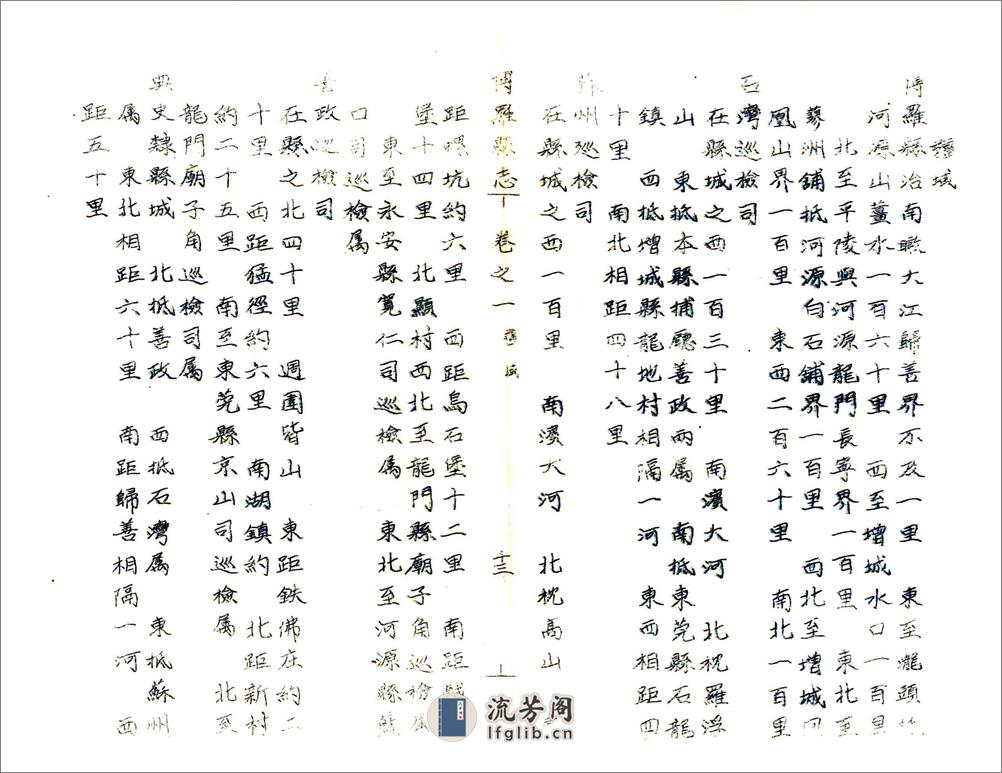 疆域
博羅縣治南瞰大江歸善界不及一里 東至瀧頭
河源山薑水一百六十里 西至增城水口一百里
北至平陵與河源龍門長寧界一百里 東北至
蓼洲舖抵河源白石舖界一百里 西北至增城
凰山界一百里 東西二百六十里 南北一百里
石灣巡檢司
在縣城之西一百三十里 南濱大河 北枕羅浮
山 東抵本縣捕廳善政兩屬 南抵東莞縣石龍
鎮 西抵增城縣龍地村相隔一河 東西相距四
十里 南北相距四十八里
蘇州巡檢司
在縣城之西一百里 南濱大河 北枕高山
博羅縣志 卷之一 疆域 十三
距螺坑約六里 西距烏石堡十二里 南距
堡十四里 北顯村西北至龍門縣廟子角巡檢屬
東至永安縣寬仁司巡檢屬 東北至河源縣藍
口司巡檢屬
善政巡檢司
在縣之北四十里 週圍皆山 東距鉄佛庄約二
十里 西距猛徑約六里 南湖鎮約 北距新村
約二十五里 南至東莞縣京山司巡檢屬 北至
龍門廟子角巡檢司屬
典史隸縣城 北抵善政 西抵石灣屬 東抵蘇州
屬 東北相距六十里 南距歸善相隔一河 西
距五十里
流芳阁
lfglib.cn